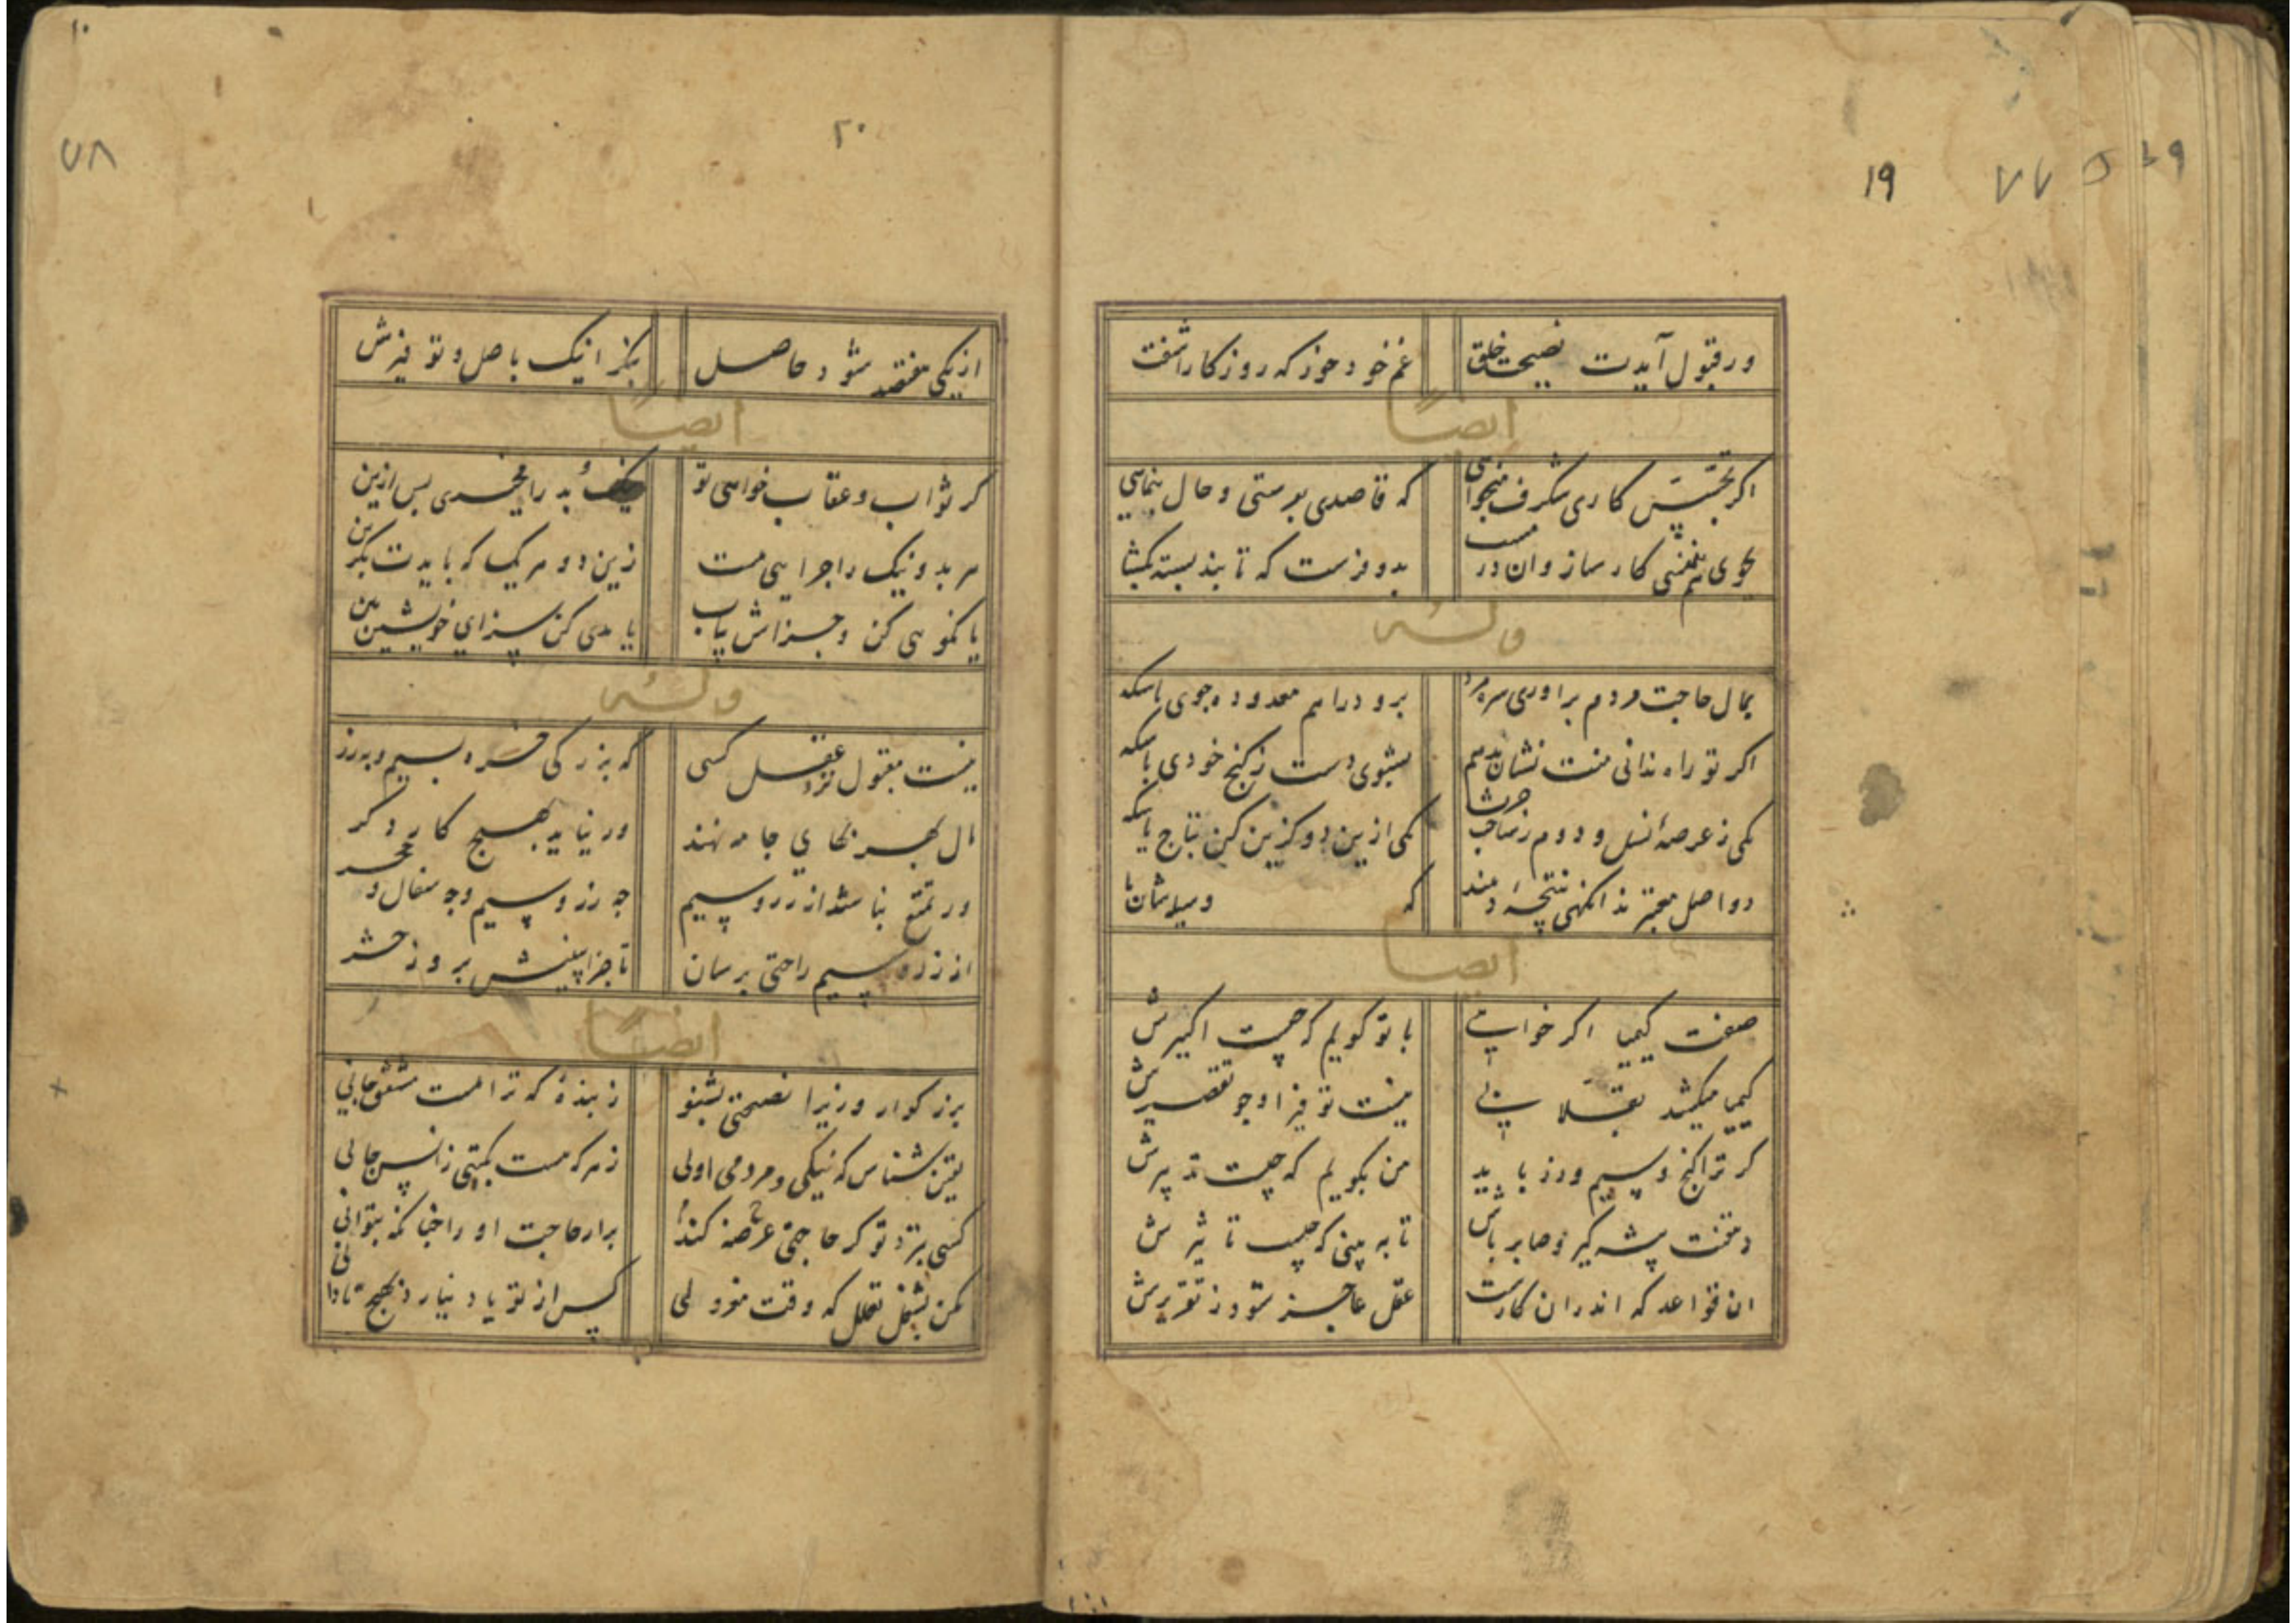 ۱۹ ۷۷
ور قبول آیدت نصیحت خلق غم خود خور که روزکار اشفت
ایضاً
اکر تجسس کاری شکرف میخواهی که قاصدی بفرستی و حال بنمایی
بجوی مفلسی کار ساز وان در بدو فرست که تا بند بسته بکشا
وله
بمال حاجت مردم براوری سره مرد برو دراهم معدود جوی یا سکه
اکر تو راه ندانی منت نشان بدهم بشوی دست ز کنج خودی یا سکه
یکی ز عرصهٔ انسل و دوم ز صاحب حرث یکی ازین دو کزین کن نتاج یا سکه
دو اصل معتبرند انکهی نتیجهٔ دهند که وسیلشان
ایضاً
صفت کیمیا اکر خواهی با تو کویم که چیست اکسیرش
کیمیا میکشد بعقلا پی نیست توفیر او جو تقصیرش
کر ترا کنج و سیم و زر باید من بکویم که چیست تدبیرش
دهقنت پیشه کیر و صابر باش تا به بینی که چیست تاثیرش
ان قواعد که اندران کارست عقل عاجز شود ز تقریرش
۷۸ ۲۰
از یکی هفتصد شود حاصل بنکر اینک باصل و توفیرش
ایضاً
کر ثواب و عقاب خواهی تو نیک و بد را مخیری پس ازین
هر بد و نیک را جزایی هست زین دو هر یک که بایدت بکزین
یا نکویی کن و جزاش بیاب یا بدی کن سزای خویش ببین
وله
نیست مقبول نزد عقل کسی که بزرکی خرد بسیم و بزر
مال بهر بهای جامه نهند ور نیاید بهیچ کار دکر
ور تمتع نباشد از زر و سیم چه زر و سیم و چه سفال و حجر
از زر و سیم راحتی برسان تا جزا بینیش بروز حشر
ایضاً
بزرکوار وزیرا نصیحتی بشنو ز بندهٔ که ترا هست مشفق جانی
یقین شناس که نیکی و مردمی اولی ز هر که هست بکیتی ز انس و جانی
کسی بنزد تو کر حاجتی عرضه کند برار حاجت او را چنانکه بتوانی
مکن بشغل تعلل که وقت معزولی کس از تو یاد نیارد بهیچ تا دانی